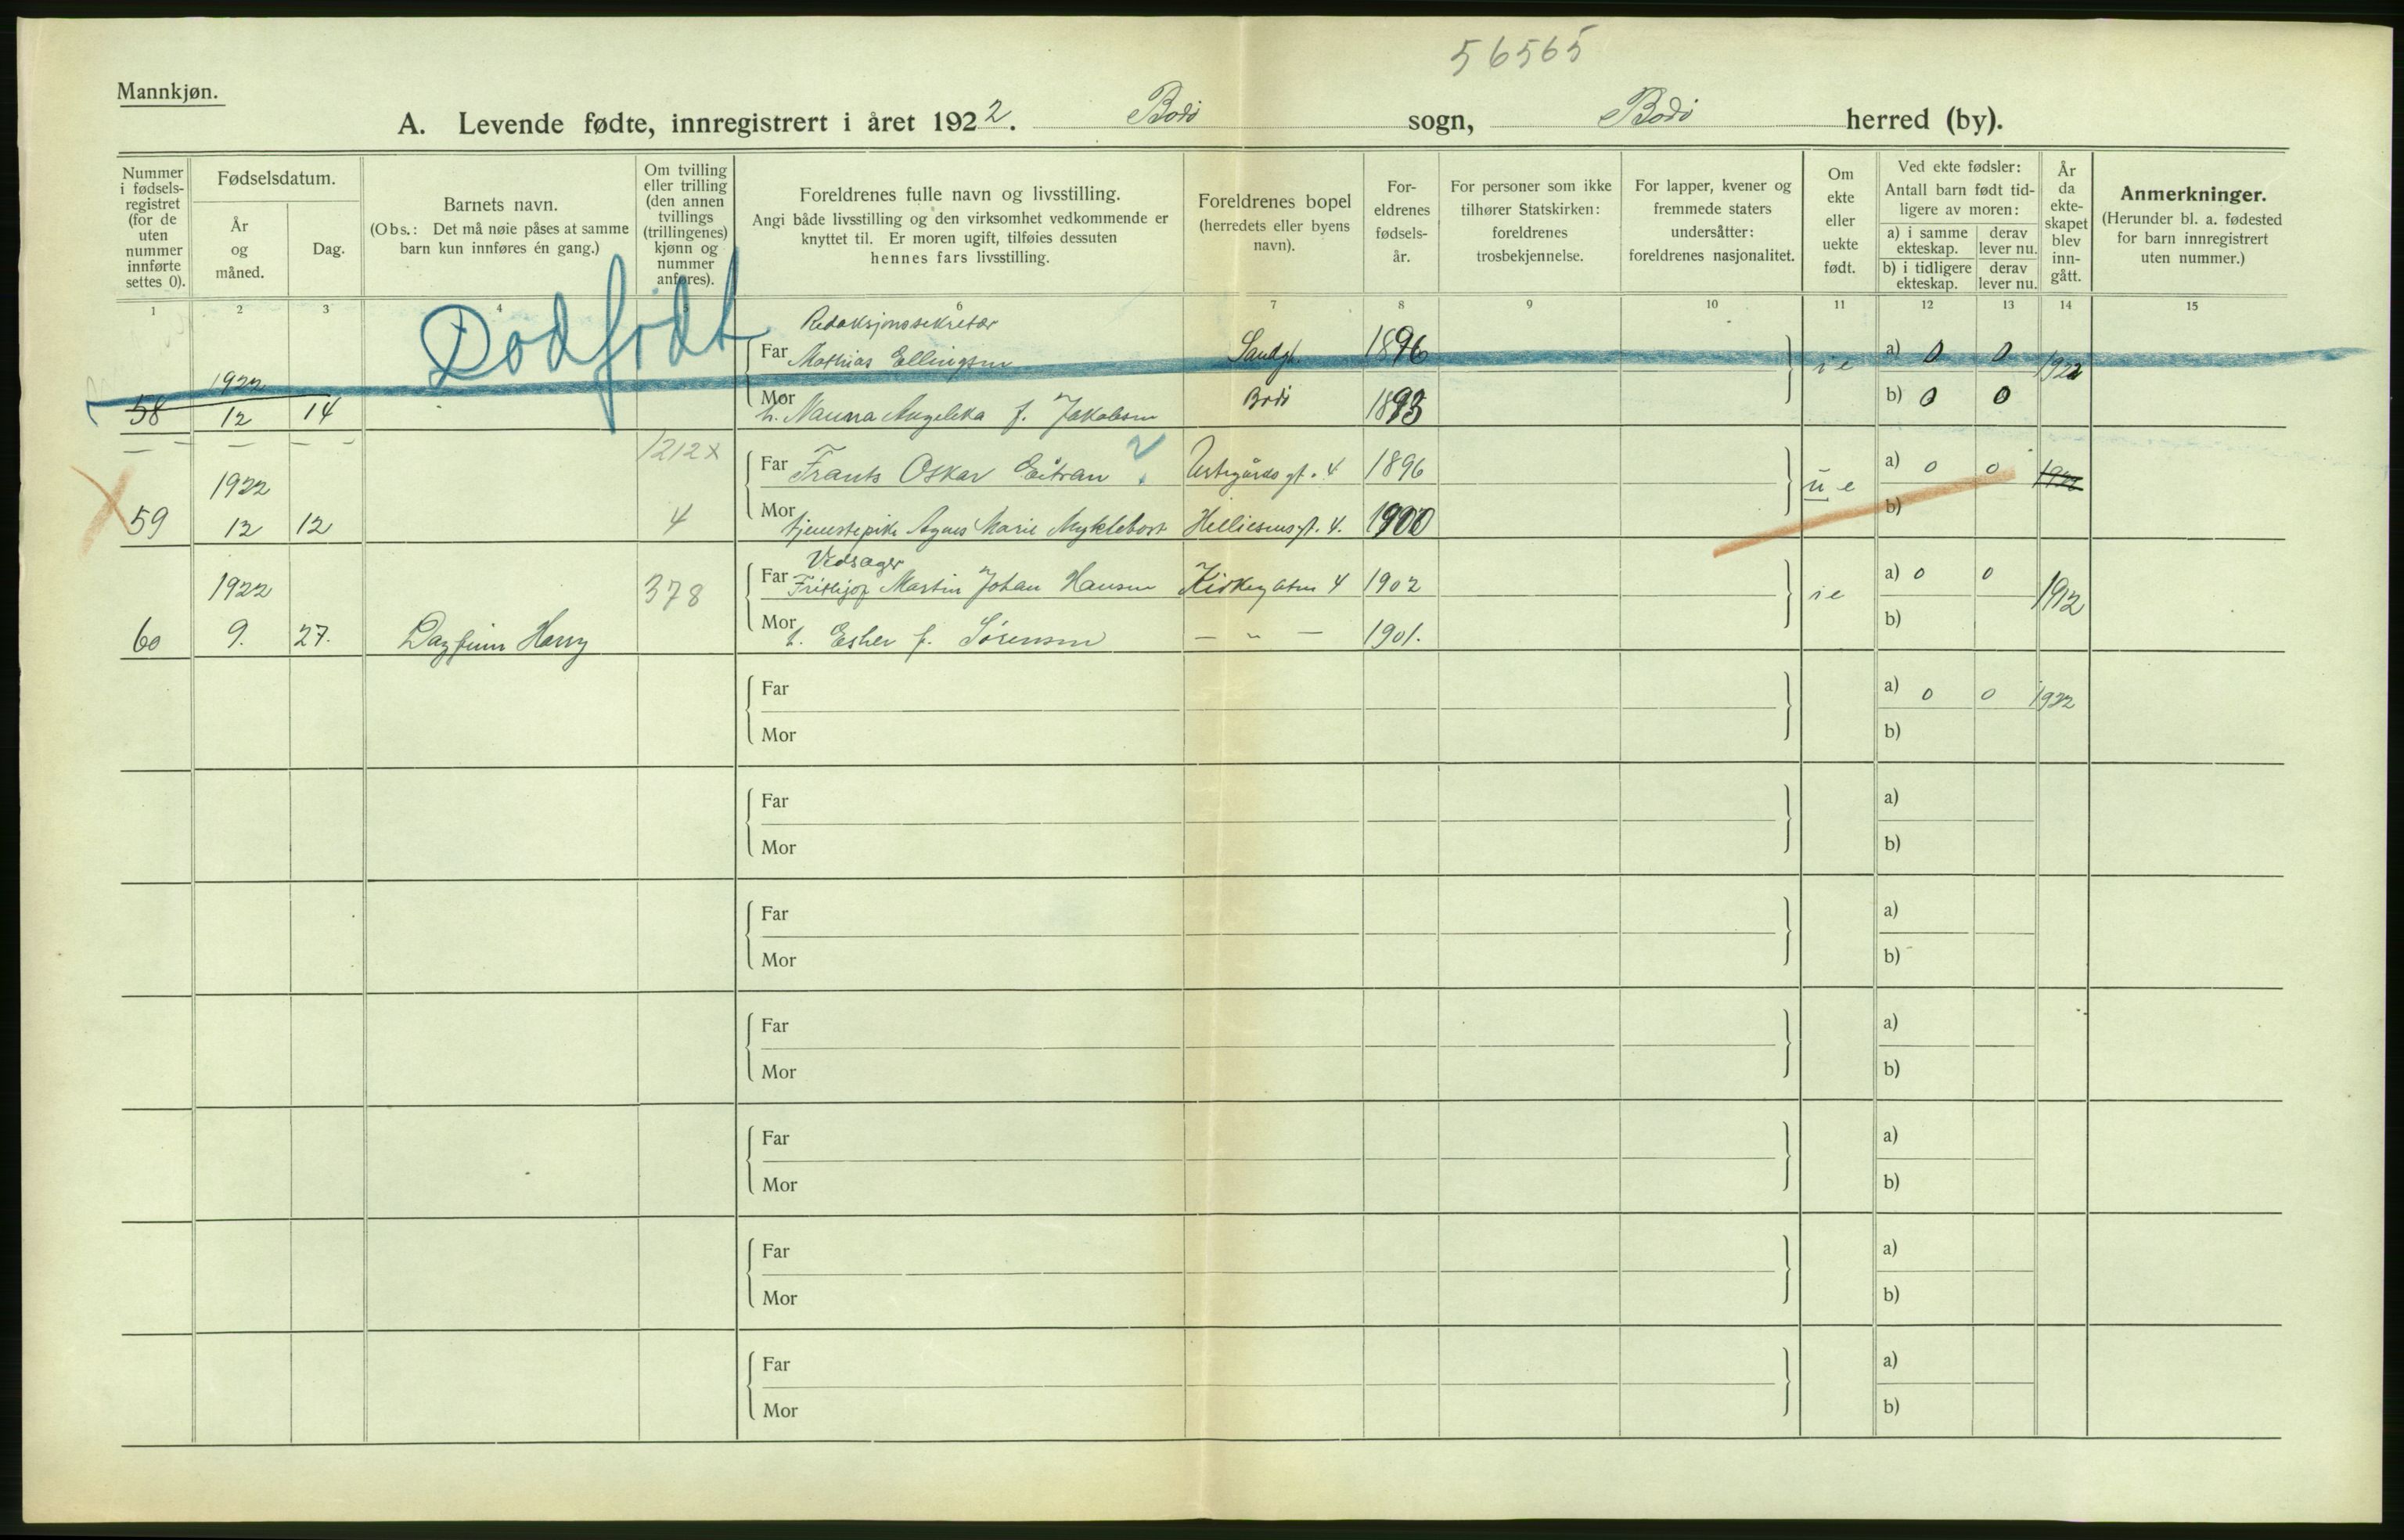 56565
Mannkjøn.
A. Levende fødte, innregistrert i året 1922. Bodø sogn, Bodø herred (by).
Nummer i fødsels-registret (for de uten nummer innførte settes 0).
Fødselsdatum.
År og måned.
Dag.
Barnets navn.
(Obs.: Det må nøie påses at samme barn kun innføres én gang.)
Om tvilling eller trilling (den annen tvillings (trillingenes) kjønn og nummer anføres).
Foreldrenes fulle navn og livsstilling.
Angi både livsstilling og den virksomhet vedkommende er knyttet til. Er moren ugift, tilføies dessuten hennes fars livsstilling.
Foreldrenes bopel
(herredets eller byens navn).
For-eldrenes fødsels-år.
For personer som ikke tilhører Statskirken: foreldrenes trosbekjennelse.
For lapper, kvener og fremmede staters undersåtter: foreldrenes nasjonalitet.
Om ekte eller uekte født.
Ved ekte fødsler:
Antall barn født tid-ligere av moren:
a) i samme ekteskap.
derav lever nu.
b) i tidligere ekteskap.
derav lever nu.
År da ekte-skapet blev inn-gått.
Anmerkninger.
(Herunder bl. a. fødested for barn innregistrert uten nummer.)
1 2 3 4 6 7 8 9 10 11 12 13 14 15
Dødfødt
Redaksjonssekretær
Far Mathias Ellingsen Sandgt. 1896 a) 0 0 1922
1922
58 12 14 Mor h. Nanna Angelika f. Jakobsen Bodø 1893 b) 0 0
1212 x
1922 Far Frants Oskar Eitran ? 4 1896 u e a) 0 0
59 12 12 4 Mor tjenestepike Agnes Marie Myklebost Hellesensgt. 4. 1900 b)
Vedsager
1922 378 Far Frithjof Martin Johan Hansen Kirkegaten 4 1902 e a) 0 0 1912
60 9. 27. Dagfinn Harry Mor h. Esher f. Sørensen — " — 1901. b)
Far a) 0 0 1922
Mor b)
Far a)
Mor b)
Far a)
Mor b)
Far a)
Mor b)
Far a)
Mor b)
Far a)
Mor b)
Far a)
Mor b)